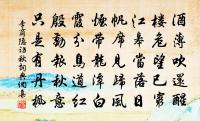 酒薄吹還醒
樓危望已窮
江皋當落日
帆席見歸風
煙帶龍潭白
霞分鳥道紅
殷勤報秋意
只是有丹楓
李商隱訪秋詞典網